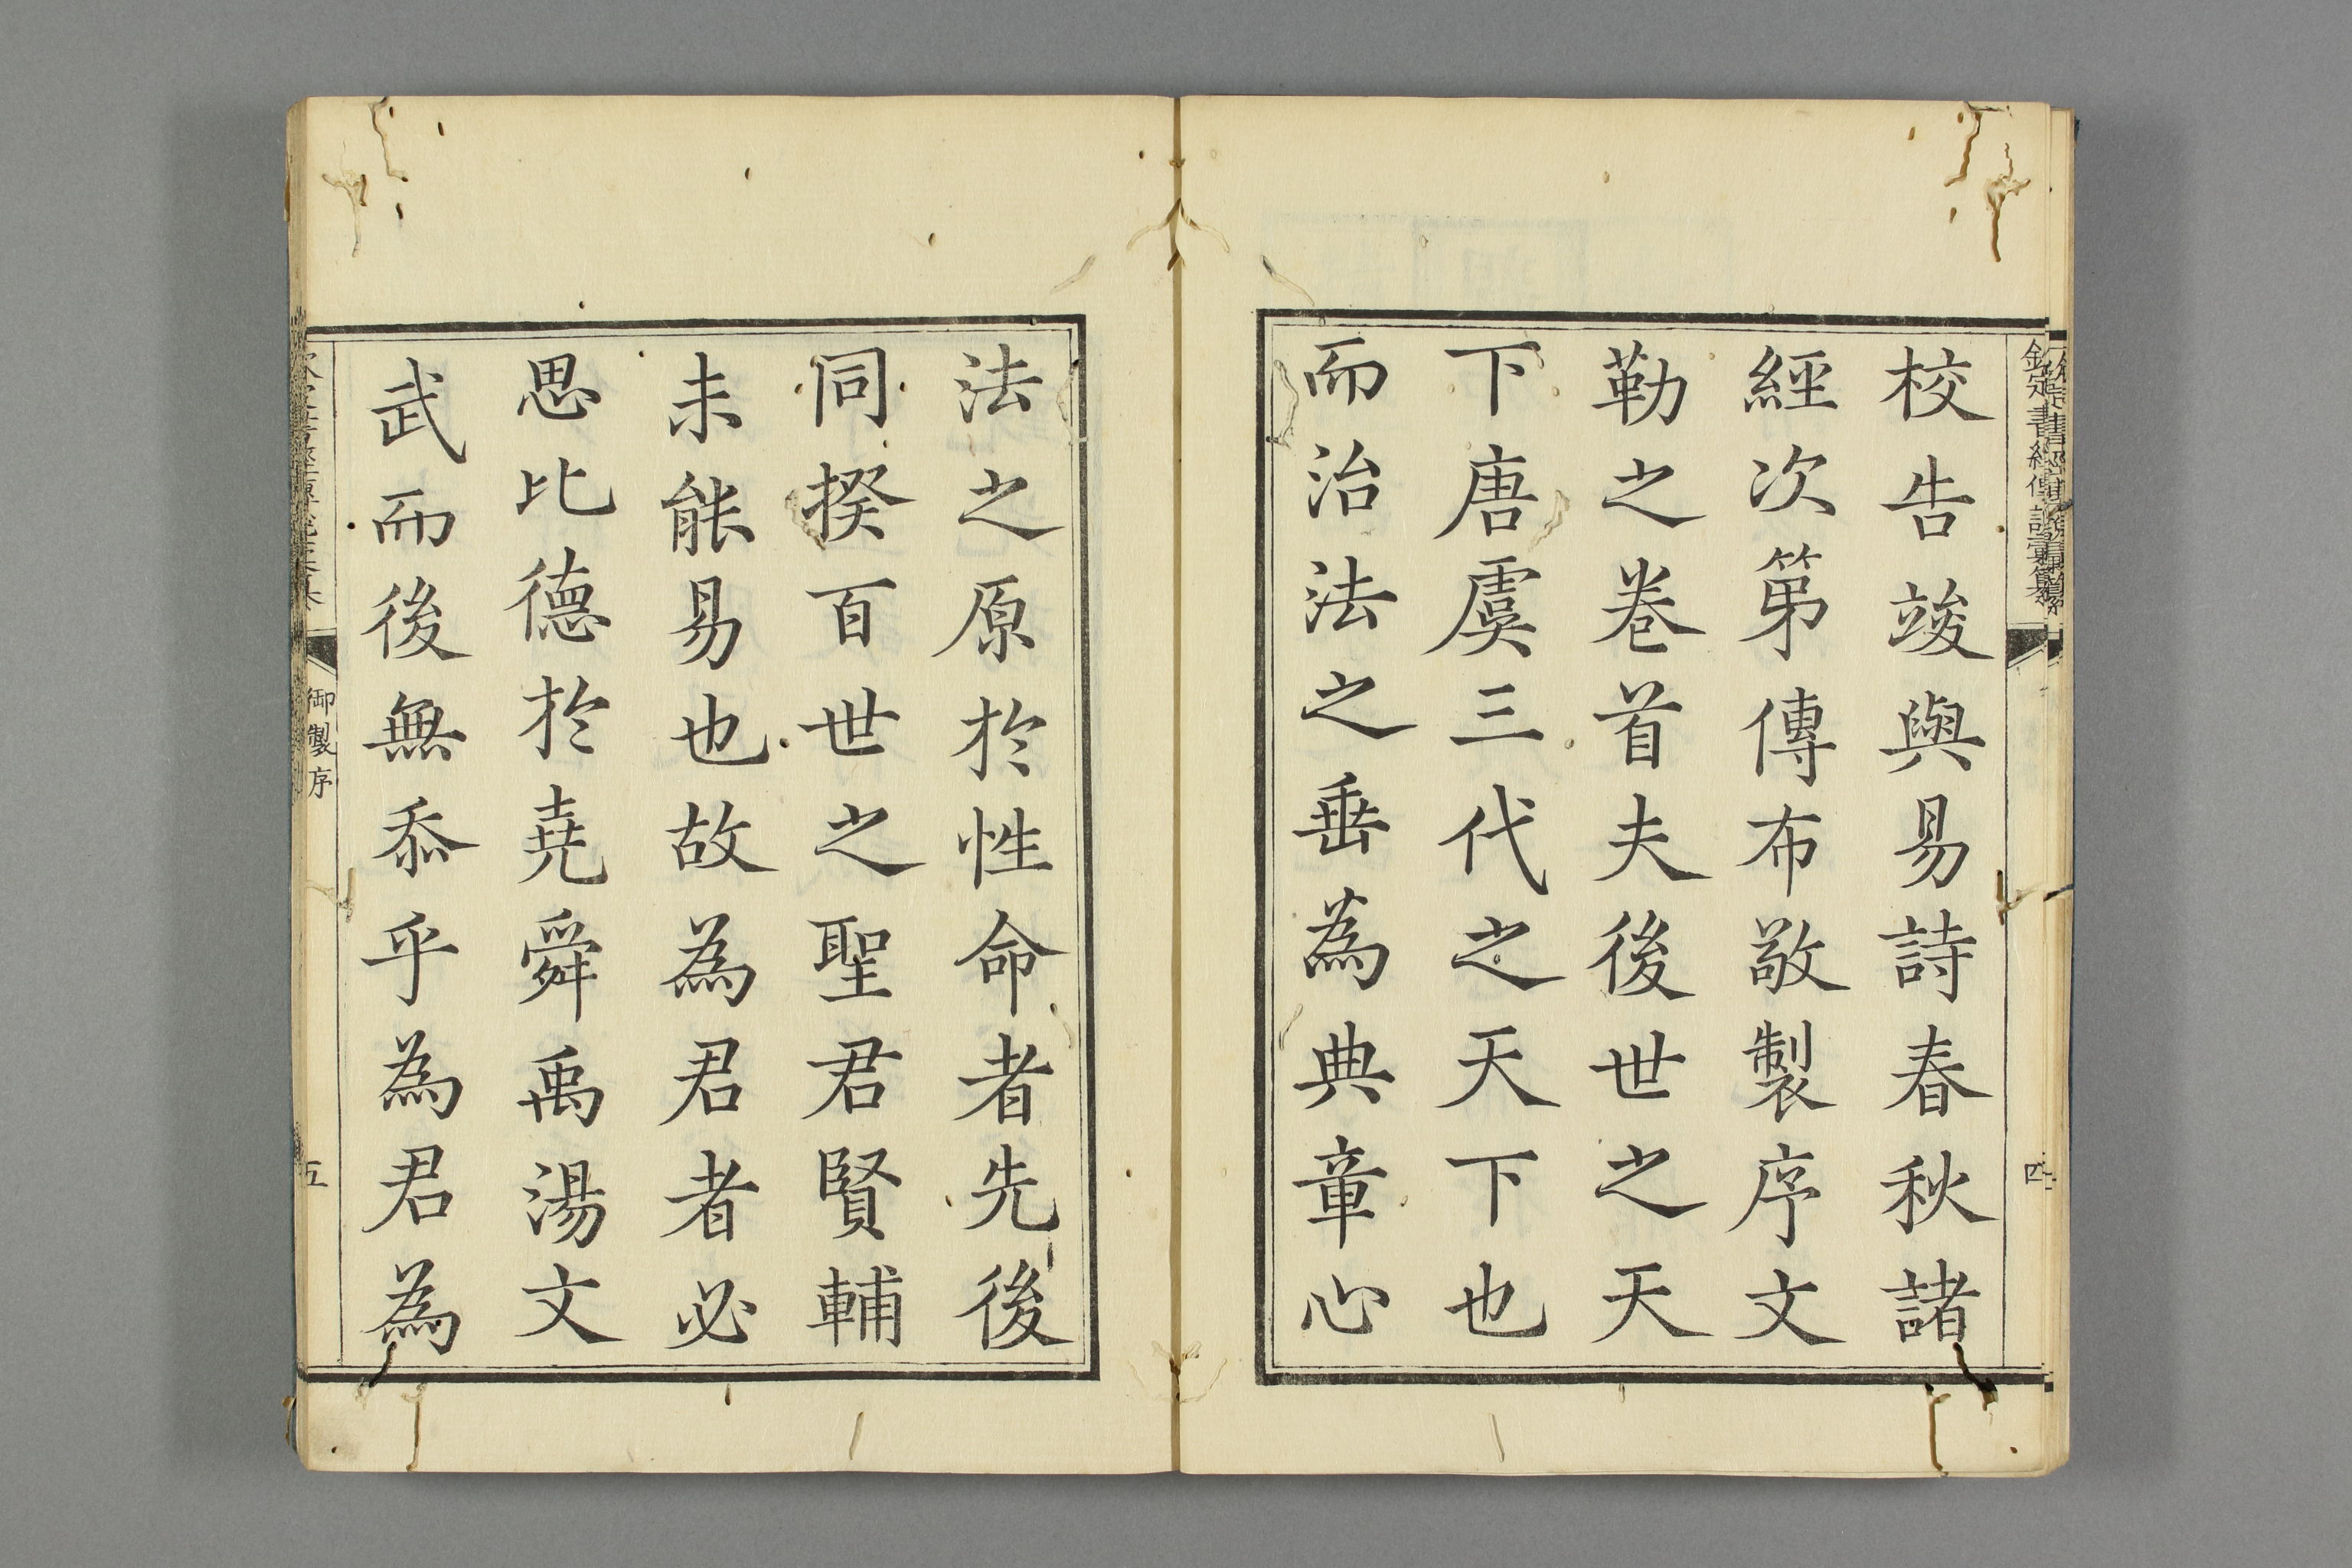 校告竣與易詩春秋諸
經次第傳布敬製序文
勒之卷首夫後世之天
下唐虞三代之天下也
而治法之垂為典章心
法之原於性命者先後
同揆百世之聖君賢輔
未能易也故為君者必
思比德於堯舜禹湯文
武而後無忝乎為君為
御製序
五
欽定書經傳說彙纂
四